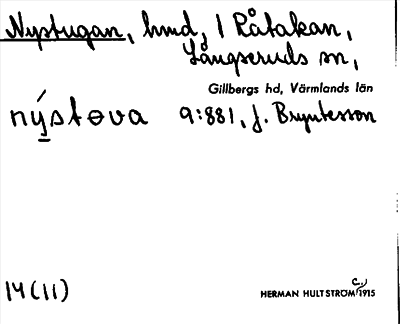 Nystugan, hmd, 1 Råtakan,
Långseruds sn,
Gillbergs hd, Värmlands län
nýstova 9:881, J. Bryntesson
14(11)
HERMAN HULTSTRÖM c.1915